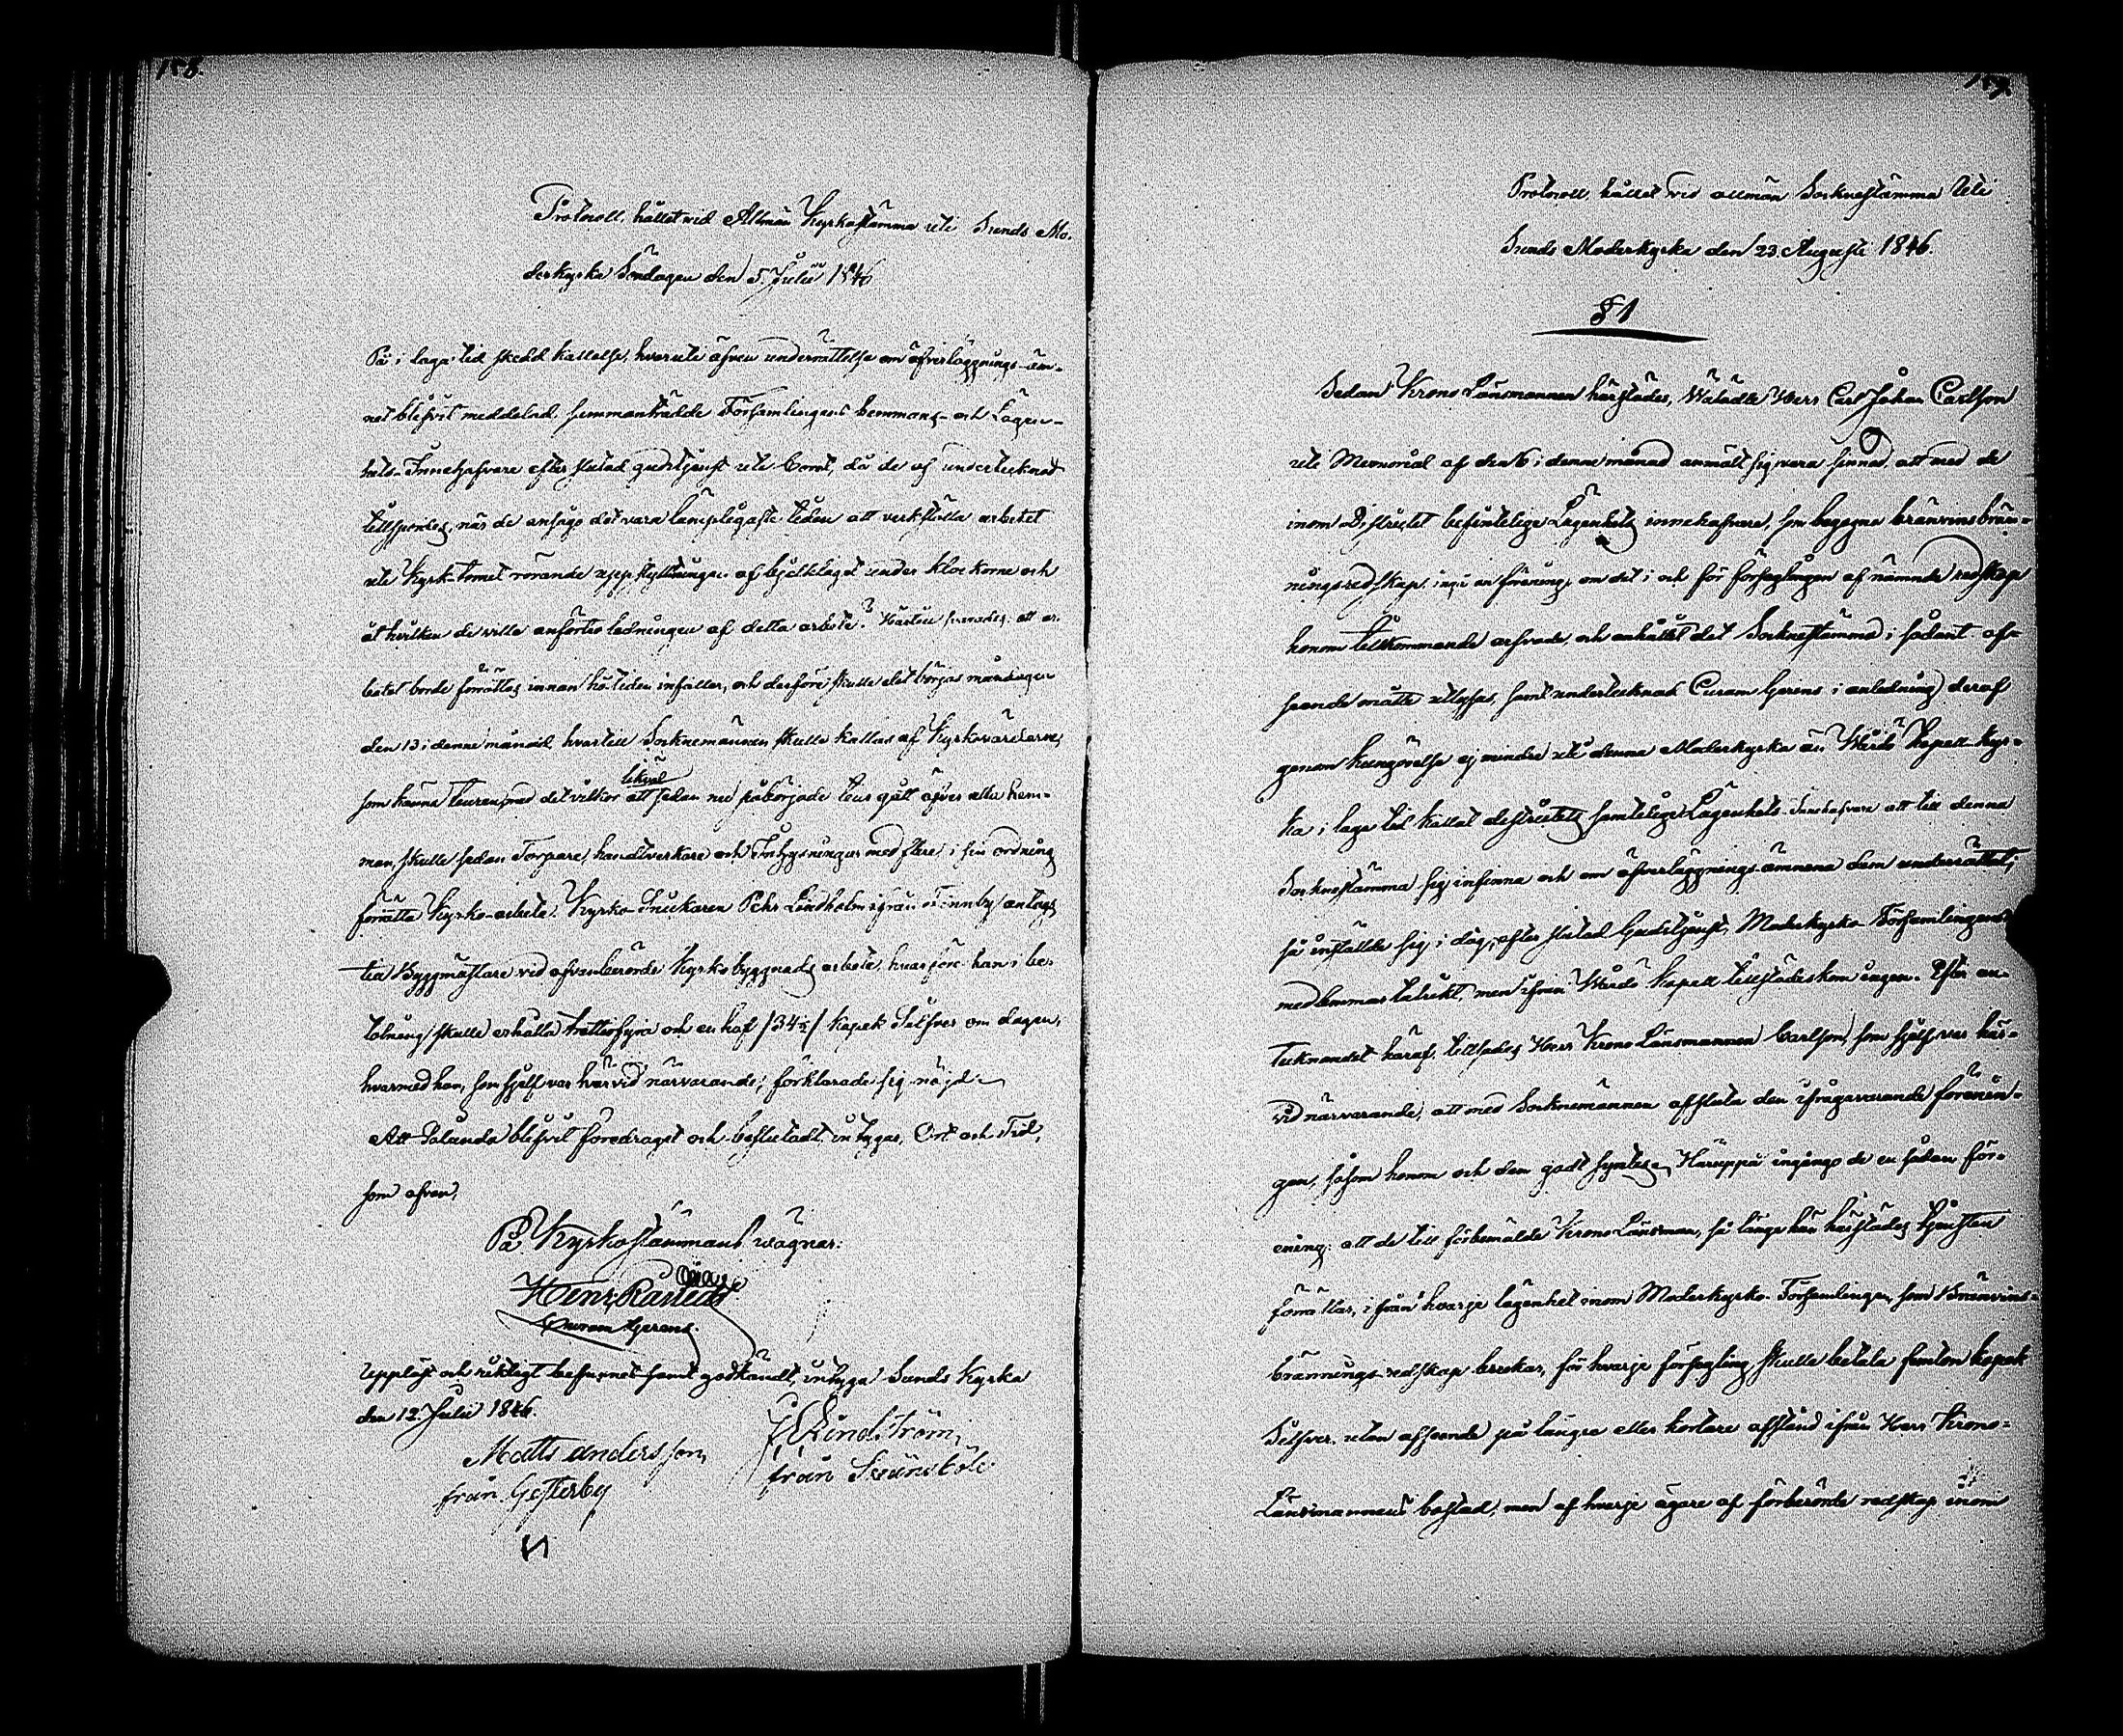 158.
Protocoll, hållet vid Allmän Kyrkostämma uti Sunds Mo-
derkyrka Söndagen den 5. Julii 1846
På i laga tid skedd kallelse, hvaruti äfven underrättelse om öfverläggnings-äm-
net blifvit meddelad, sammanträdde Församlingens hemmans- och Lägen-
hets-Innehafvare efter slutad gudstjenst uti Coret, då de af undertecknad
tillspordes, när de ansågo det vara lämpligaste tiden att verkställa arbetet
uti Kyrk-tornet rörande uppskyllningen af bjelklaget under klockorne och
åt hvilken de ville anförtro ledningen af detta arbete? Härtill svarades: att ar-
betet borde förrättas innan hö-tiden infaller, och derföre skulle det börjas måndagen
den 13 i denne månad, hvartill Socknemännen skulle kallas af Kyrkovärdarne,
som känna turen, med det vilkor likväl att sedan nu påbörjade tur gått öfver alla hem-
man, skulle sedan Torpare, handtverkare och Inhysningar med flere i sin ordning
förrätta Kyrko-arbete. Kyrko-Snickaren Pehr Lindholm ifrån Finnby antogs
till Byggmästare vid ofvanberörde Kyrkobyggnads arbete, hvarföre han i be-
talning skulle erhålla trettiofyra och en half /34½/ kopek Silfver om dagen,
hvarmed han, som sjelf var härvid närvarande, förklarade sig nöjd.
Att Sålunda blifvit föredraget och beslutadt, intygas, Ort och Tid,
som ofvan.
På Kyrkostämmans vägnar:
Curam Gerens.
Uppläst och riktigt befunnet samt godkändt, intyga Sunds Kyrka
den 12. Julii 1846.
Matts andersson
från Gesterby
J. E. Lindström,
från Svensböle
159.
Protocoll, hållet vid allmän Socknestämma Uti
Sunds Moderkyrka den 23. Augusti 1846.
§ 1
Sedan Krono Länsmannen härstädes, Wälädle Herr Carl Johan Carlson
uti Memorial af den 6 i denne månad anmält sig vara sinnad, att med de
inom Districtet befintelige Lägenhets innehafvare, som begagna bränvinsbrän-
ningsredskap, ingå en förening, om det i och för förseglingen af nämnde redskap
honom tillkommande arfvode, och anhållit det Socknestämma i sådant af-
seende måtte utlysas, samt undertecknad Curam Gerens i anledning deraf
genom kungörelse ej mindre uti denna Moderkyrka än Wårdö Kapell-kyr-
ka i laga tid kallat districtets samtelige Lägenhets-Innehafvare att till denna
Socknestämma sig infinna och om öfverläggnings-ämnena dem underrättat;
så inställde sig i dag, efter slutad Gudstjenst, Moderkyrko Församlingens
medlemmar talrikt, men ifrån Wårdö Kapell tillstädeskom ingen. Efter an-
tecknandet häraf, tillsades Herr Krono Länsmannen Carlson, som sjelf var här-
vid närvarande, att med Socknemännen afsluta den ifrågavarande förenin-
gen, såsom honom och dem godt syntes. Häruppå ingingo de en sådan för-
ening: att de till förbemälde Krono Länsman, så länge han härstädes tjensten
förrättar, ifrån hvarje lägenhet inom Moderkyrko-Församlingen, som Bränvins-
brännings-redskap brukar, för hvarje försegling skulle betala femton kopek
Silfver, utan afseende på längre eller kortare afstånd ifrån Herr Krono-
Länsmannens bostad, men af hvarje ägare af förberörde redskap inom